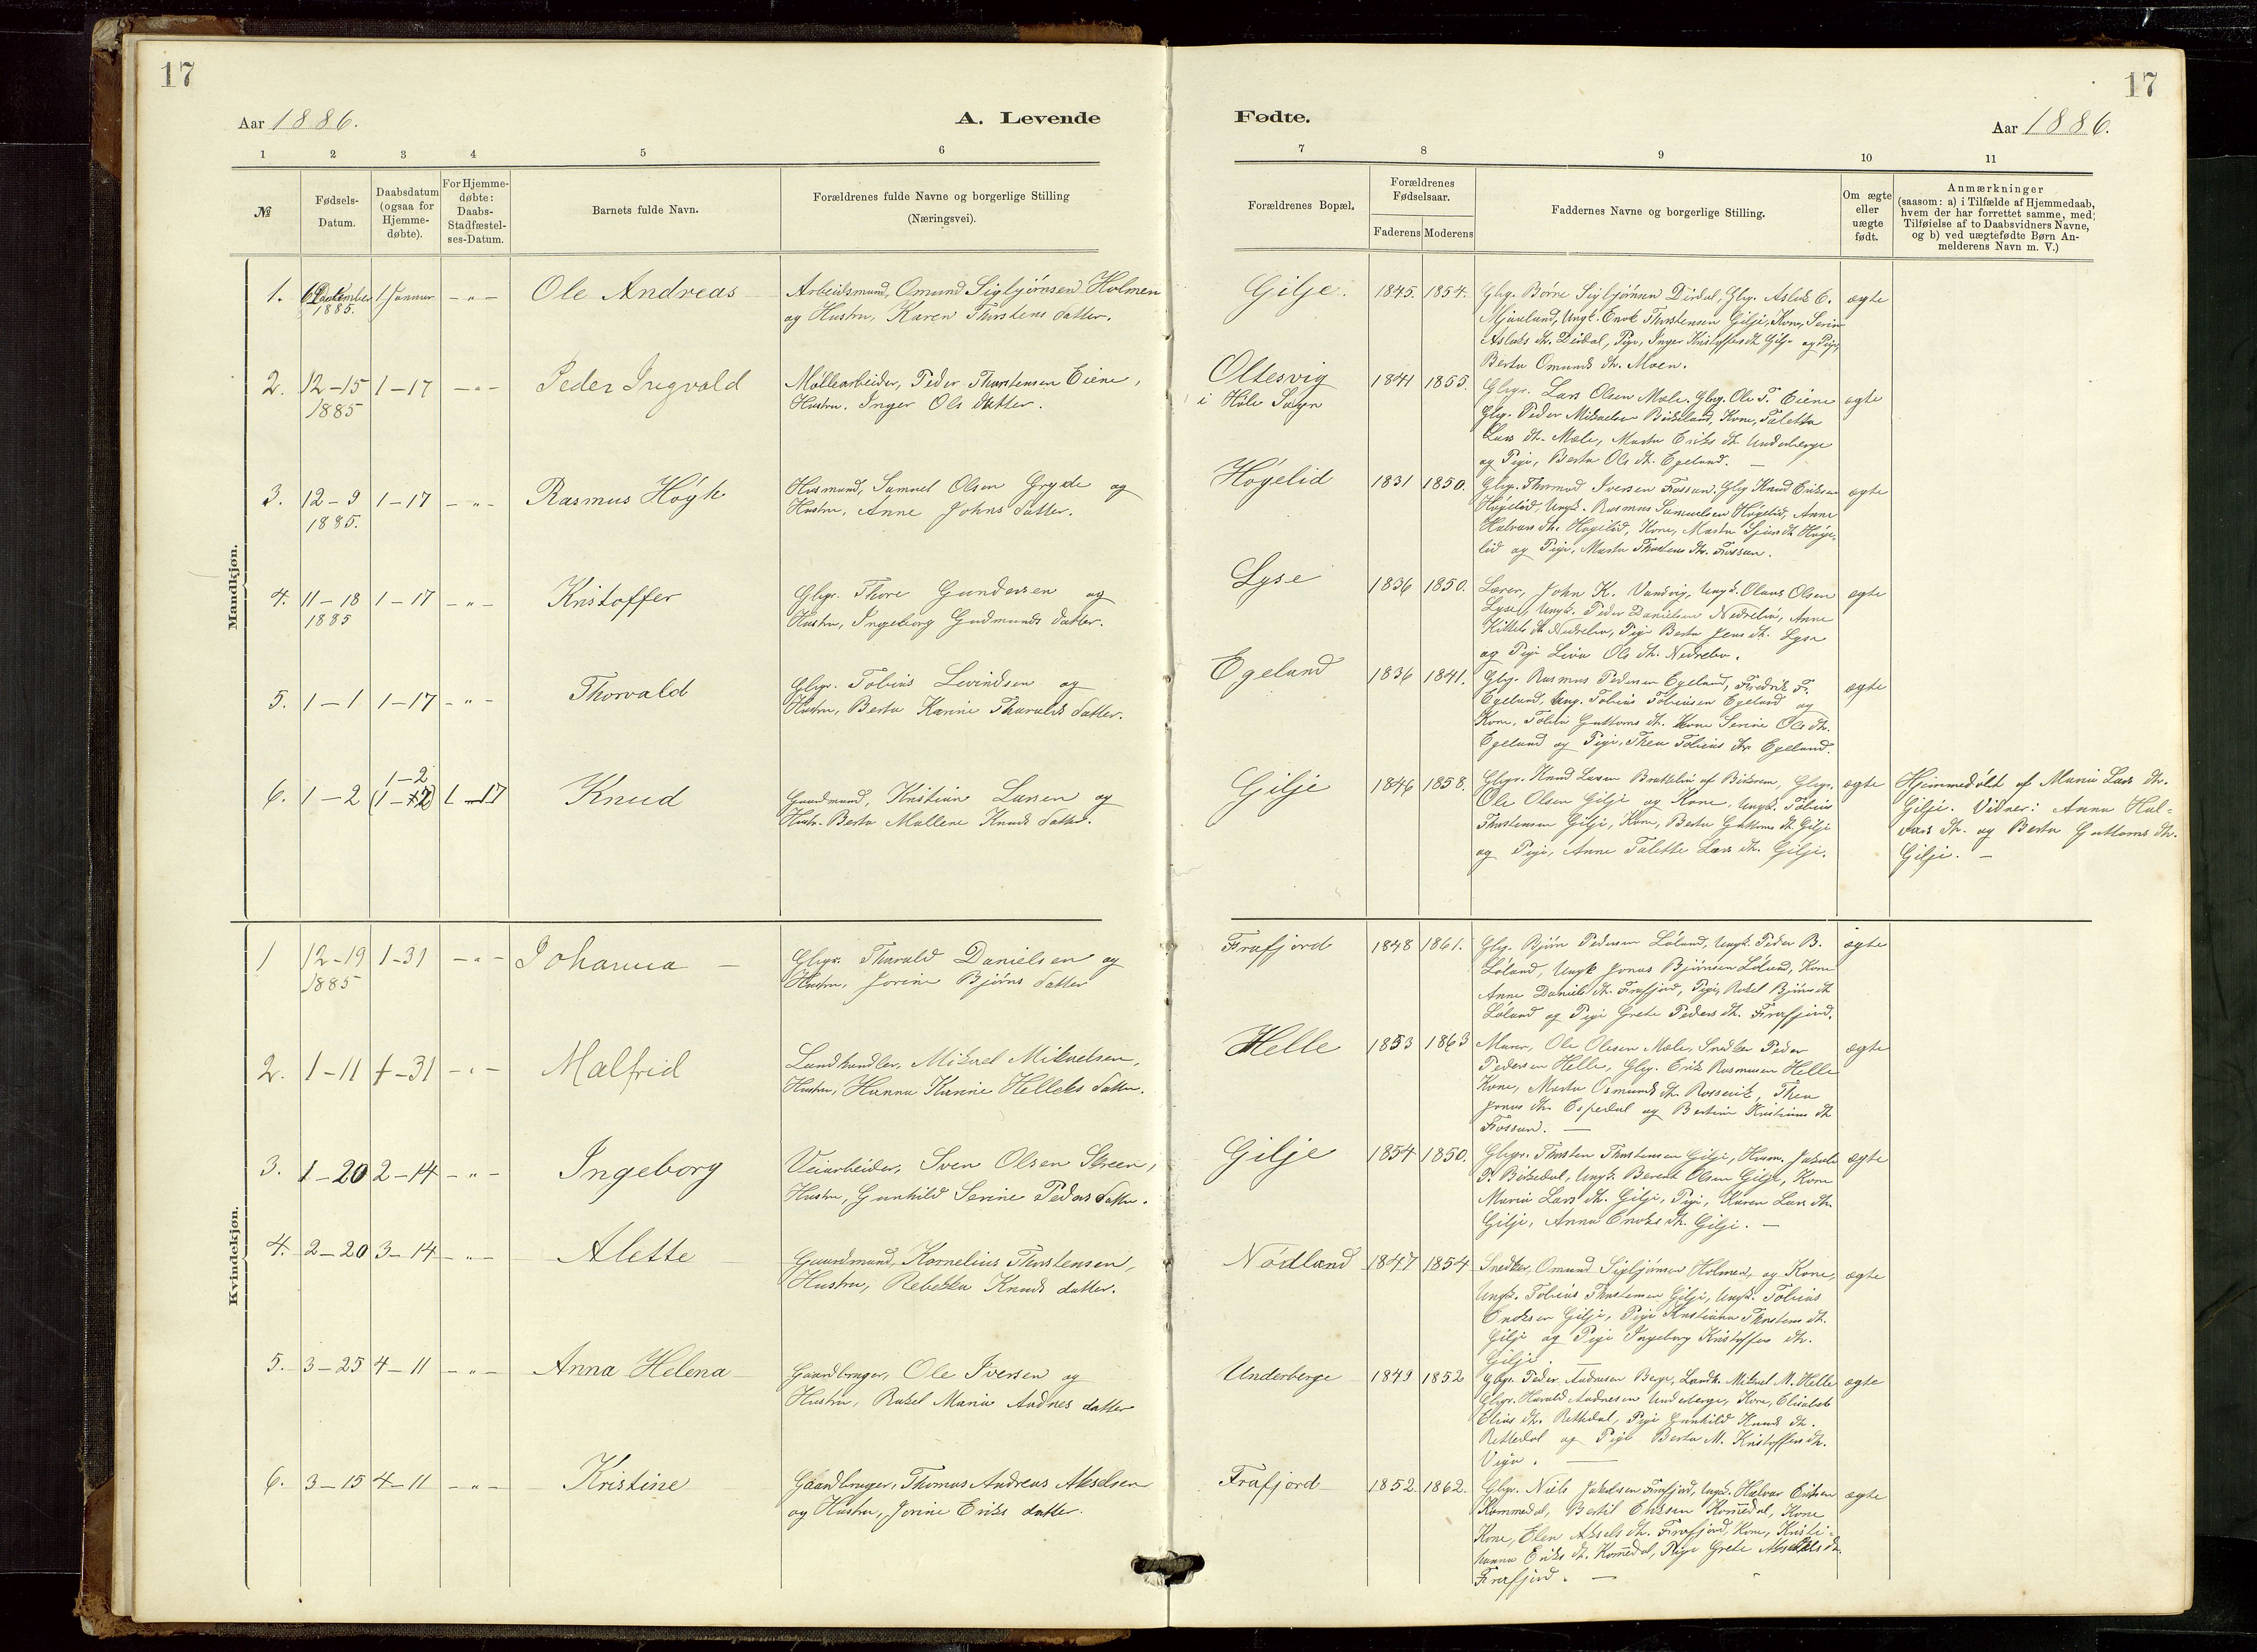 17
Aar 1886.
A. Levende
1 2 3 4 5 6
№
Fødsels-
Datum.
Daabsdatum
(ogsaa for
Hjemme-
døbte).
For Hjemme-
døbte:
Daabs-
Stadfæstel-
ses-Datum.
Barnets fulde Navn.
Forældrenes fulde Navne og borgerlige Stilling
(Næringsvei).
Mandkjøn.
1. December 1 Januar - " - Ole Andreas Arbeidsmand, Omund Sigbjørnsen Holmen
1885. og Hustru, Karen Thorstens datter.
2. 12-15 1-17 - " - Peder Ingvald Møllearbeider, Peder Thorstensen Eiene,
1885 Hustru. Inger Ols datter.
3. 12-9 1-17 - " - Rasmus Høgh Husmand, Samuel Olsen Gryde og
1885. Hustru, Anne Johns datter.
4. 11-18 1-17 - " - Kristoffer Gbgr. Thore Gundersen og
1885 Hustru, Ingeborg Gudmunds datter.
5. 1-1 1-17 - " - Thorvald Gbgr. Tobias Levindsen og
Hustru, Berta Karine Tharalds datter.
6. 1-2 1-2 1-17 Knud Gaardmand, Kristian Larsen og
Hustr. Berta Mallene Knuds datter.
Kvindekjøn.
1 12-19 1-31 - " - Johanna Gbgr. Tharald Danielsen og
1885 Hustru, Jorine Bjørns datter
2. 1-11 1-31 - " - Malfrid Landhandler, Mikael Mikaelsen,
Hustru, Hanna Karine Helleks datter.
3. 1-20 2-14 - " - Ingeborg Veiarbeider, Sven Olsen Skreen,
Hustru, Gunhild Serine Peders datter.
4. 2-20 3-14 - " - Alette Gaardmand, Kornelius Thorstensen,
Hustru, Rebekka Knuds datter.
5. 3-25 4-11 - " - Anna Helena Gaardbruger, Ole Iversen og
Hustru, Rakel Maria Andres datter
6. 3-15 4-11 - " - Kristine Gaardbruger, Thomas Andreas Akselsen
og Hustru, Jorine Eriks datter.
17
Fødte.
Aar 1886.
7 8 9 10 11
Forældrenes Bopæl.
Forældrenes
Fødselsaar.
Faderens Moderens
Faddernes Navne og borgerlige Stilling.
Om ægte
eller
uægte
født.
Anmærkninger
(saasom: a) i Tilfælde af Hjemmedaab,
hvem der har forrettet samme, med
Tilføielse af to Daabsvidners Navne,
og b) ved uægtefødte Børn An-
melderens Navn m. V.)
Gilje. 1845. 1854. Gbg. Børre Sigbjørnsen Dirdal, Gbg. Aslak E. ægte
Mjaaland, Ungk. Enok Thorstensen Gilje, Kone, Serine
Aslaks dt. Dirdal, Pige, Inger Kristoffers dt. Gilje og Pige,
Berta Omunds dt. Moen.
Oltesvig 1841 1855. Gbgr. Lars Olsen Mæle. Gbg. Ole T. Eiene ægte
i Høle Sogn Gbg. Peder Mikaelsen Birkeland, Kone, Taletta
Lars dt. Mæle, Marta Eriks dt. Underberge
og Pige, Berta Ols dt. Egeland.
Høgelid 1831 1850. Gbg. Thormod Iversen Fossan. Gbg Knud Eriksen ægte
Høgelid, Ungk. Rasmus Samuelsen Høgelid, Anne
Halvars dt. Høgelid, Kone, Marta Sjurs dt. Høge-
lid og Pige, Marta Thorstens dt. Fossan.
Lyse 1836 1850. Lærer, John K. Vandvig, Ungk. Olaus Olsen ægte
Lyse, Ungk. Peder Danielsen Nedrebø, Anne
Kittels dt. Nedrebø, Pige Berta Jens dt. Lyse
og Pige Liva Ols dt. Nedrebø.
Egeland 1836 1841. Gbg. Rasmus Pedersen Egeland, Fredrik F. ægte
Egeland, Ung. Tobias Tobiasen Egeland og
Kone, Tobia Guttorms dt. Kone Serine Ols dt.
Egeland og Pige, Thea Tobias dt. Egeland.
Gilje 1846 1858. Gbgr. Knud Larsen Brattebø af Birkrem, Gbgr. ægte Hjemmedøbt af Maria Lars dt.
Ole Olsen Gilje og Kone, Ungk. Tobias Gilje. Vidner: Anna Hal-
Thorstensen Gilje, Kone, Berta Guttorms dt. Gilje vars dt. og Berta Guttorms dt.
og Pige, Anne Talette Lars dt. Gilje. Gilje. -
Frafjord 1848 1861. Gbg. Bjørn Pedersen Løland, Ungk. Peder B. ægte
Løland, Ungk Jonas Bjørnsen Løland, Kone
Anne Daniels dt. Frafjord, Pige, Rakel Bjørns dt
Løland og Pige Grete Peders dt. Frafjord.
Helle 1853 1863 Murer, Ole Olesen Mæle, Snedker Peder ægte
Pedersen Helle, Gbg. Erik Rasmusen Helle
Kone, Marta Osmunds dt. Rossevik, Thea
Jonas dt. Espedal og Bertine Kristians dt
Fossan.
Gilje 1854 1850. Gbgr. Thorsten Thorstensen Gilje, Husm. Jakob ægte
P. Birkedal, Ungk. Berent Olsen Gilje, Kone
Maria Lars dt. Gilje, Pige, Karen Lars dt.
Gilje, Anna Enoks dt. Gilje. -
Nødland 1847 1854 Snedker, Omund Sigbjørnsen Holmen, og Kone, ægte
Ungk. Tobias Thorstensen Gilje, Ungk. Tobias
Enoksen Gilje, Pige Kristianna Thorstens dt.
Gilje og Pige Ingeborg Kristoffers dt.
Gilje.
Underberge 1849 1852 Gbgr. Peder Andresen Berge, Landh. Mikael M. Helle ægte
Gbgr. Harald Andresen Underberge, Kone, Elisabeth
Elias dt. Rettedal, Pige Gunhild Knuds dt.
Rettedal og Pige Berta M. Kristoffers dt.
Viga.
Frafjord 1852. 1862. Gbgr. Niels Jakobsen Frafjord, Ungk. Halvar Eriksen ægte
Kommedal, Bertil Eriksen Kommedal, Kone
Kone, Elen Aksels dt. Frafjord, Kone, Kristi-
hanna Eriks dt. Kommedal, Pige Grete Aksels dt.
Frafjord.